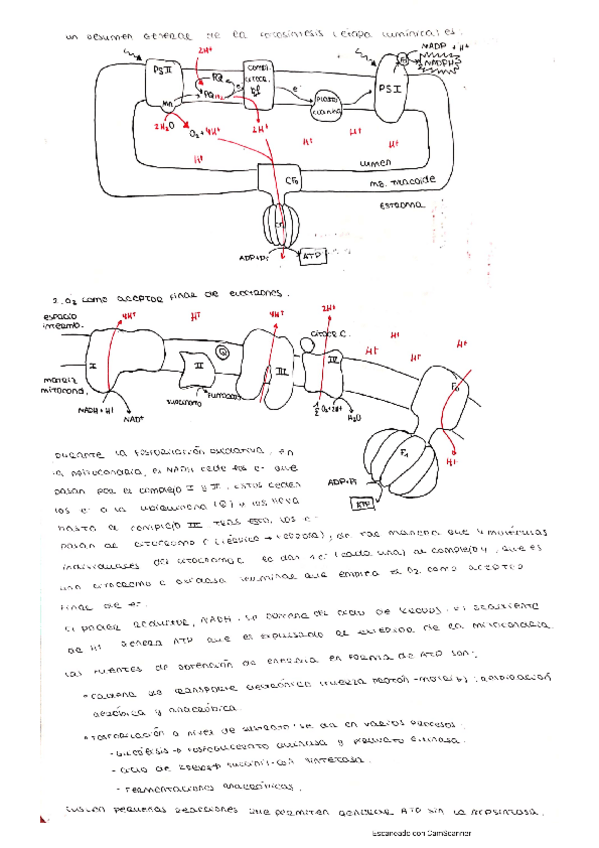 un resumen general de la fotosíntesis (etapa lumínica) es:
2H+
NADP + H+
NADPH
PSII
PQ
PQH2
b6f
e-
Plasto
cianina
PSI
Mn
2H2O
O2 + 4H+
2H+
H+
H+
H+
H+
lumen
CF0
mb. tilacoide
estroma
ADP+Pi
ATP
2. O2 como aceptor final de electrones.
espacio
intermb.
4H+
H+
4H+
2H+
citocr C.
H+
H+
H+
H+
I
II
Q
III
IV
F0
matriz
mitocond.
NADH + H+
NAD+
succinato
fumarato
1/2 O2+2H+
H2O
F1
H+
ADP+Pi
ATP
Durante la fosforilación oxidativa, en
la mitocondria, el NADH cede los e- que
pasan por el complejo I y II. Estos ceden
los e- a la ubiquinona (Q) y los lleva
hasta el complejo III. Tras esto, los e-
pasan al citocromo C, de tal manera que 4 moléculas
individuales del citocromo C ceden 1 e- (cada una) al complejo IV, que es
una citocromo C oxidasa terminal que emplea el O2 como aceptor
final de e-.
El poder reductor, NADH, se obtiene del ciclo de Krebs. El gradiente
de H+ genera ATP que es expulsado al exterior de la mitocondria.
Las fuentes de obtención de energía en forma de ATP son:
• cadena de transporte electrónico (fuerza protón-motriz): respiración
aeróbica y anaeróbica.
• fosforilación a nivel de sustrato: se da en varios procesos.
- Glicólisis → fosfoglicerato quinasa y piruvato quinasa.
- ciclo de Krebs → succinil-CoA sintetasa.
- Fermentaciones anaeróbicas.
Suelen pequeñas reacciones que permiten generar ATP sin la ATPsintasa.
Escaneado con CamScanner